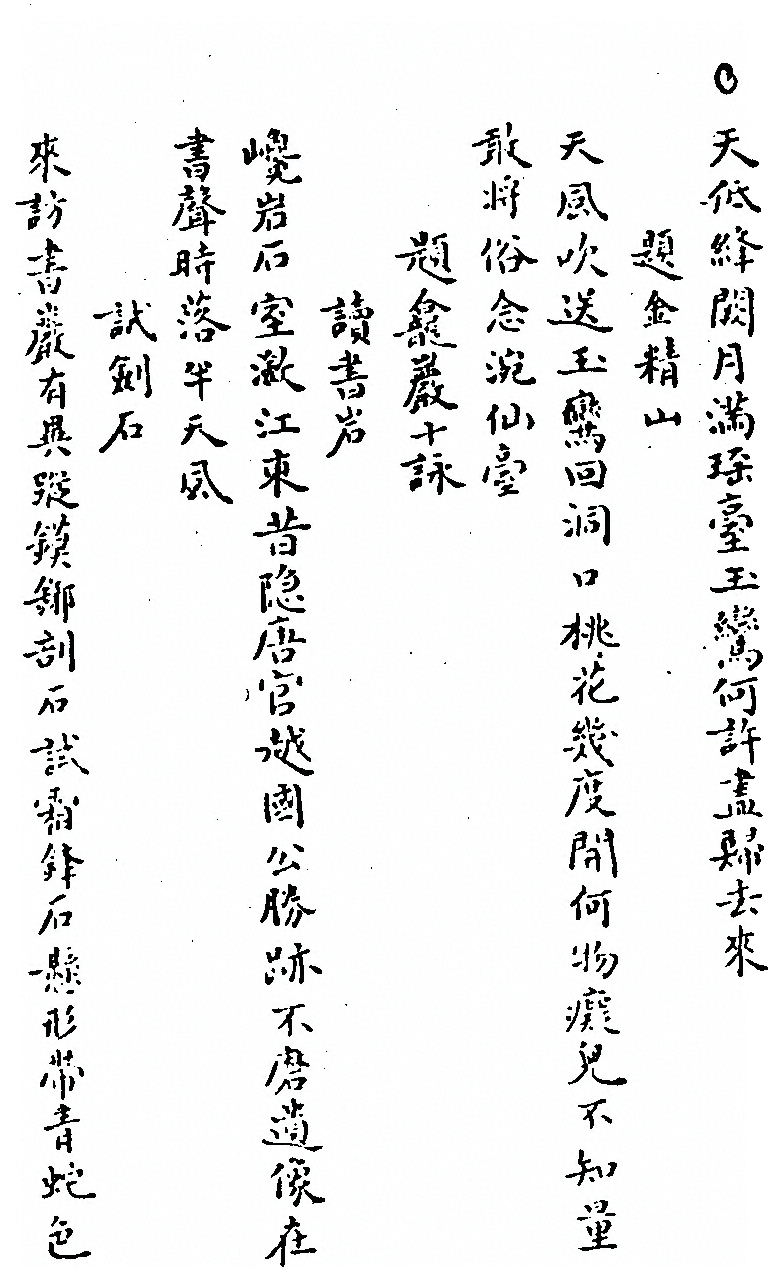 天低絳闕月滿瑤臺玉鸞何許盍歸去來
題金精山
天風吹送玉鸞回洞口桃花幾度開何物癡兒不知量
敢將俗念涴仙臺
題龕巖十詠
讀書岩
巉岩石室瀫江東昔隐唐官越國公勝跡不磨遺像在
書聲時落半天風
試劍石
來訪書巖有異蹤鏌鋣剖石試霜鋒石懸形帶青蛇色